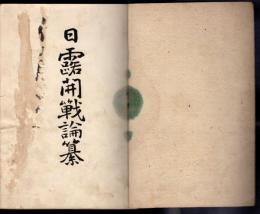 日露開戰論纂